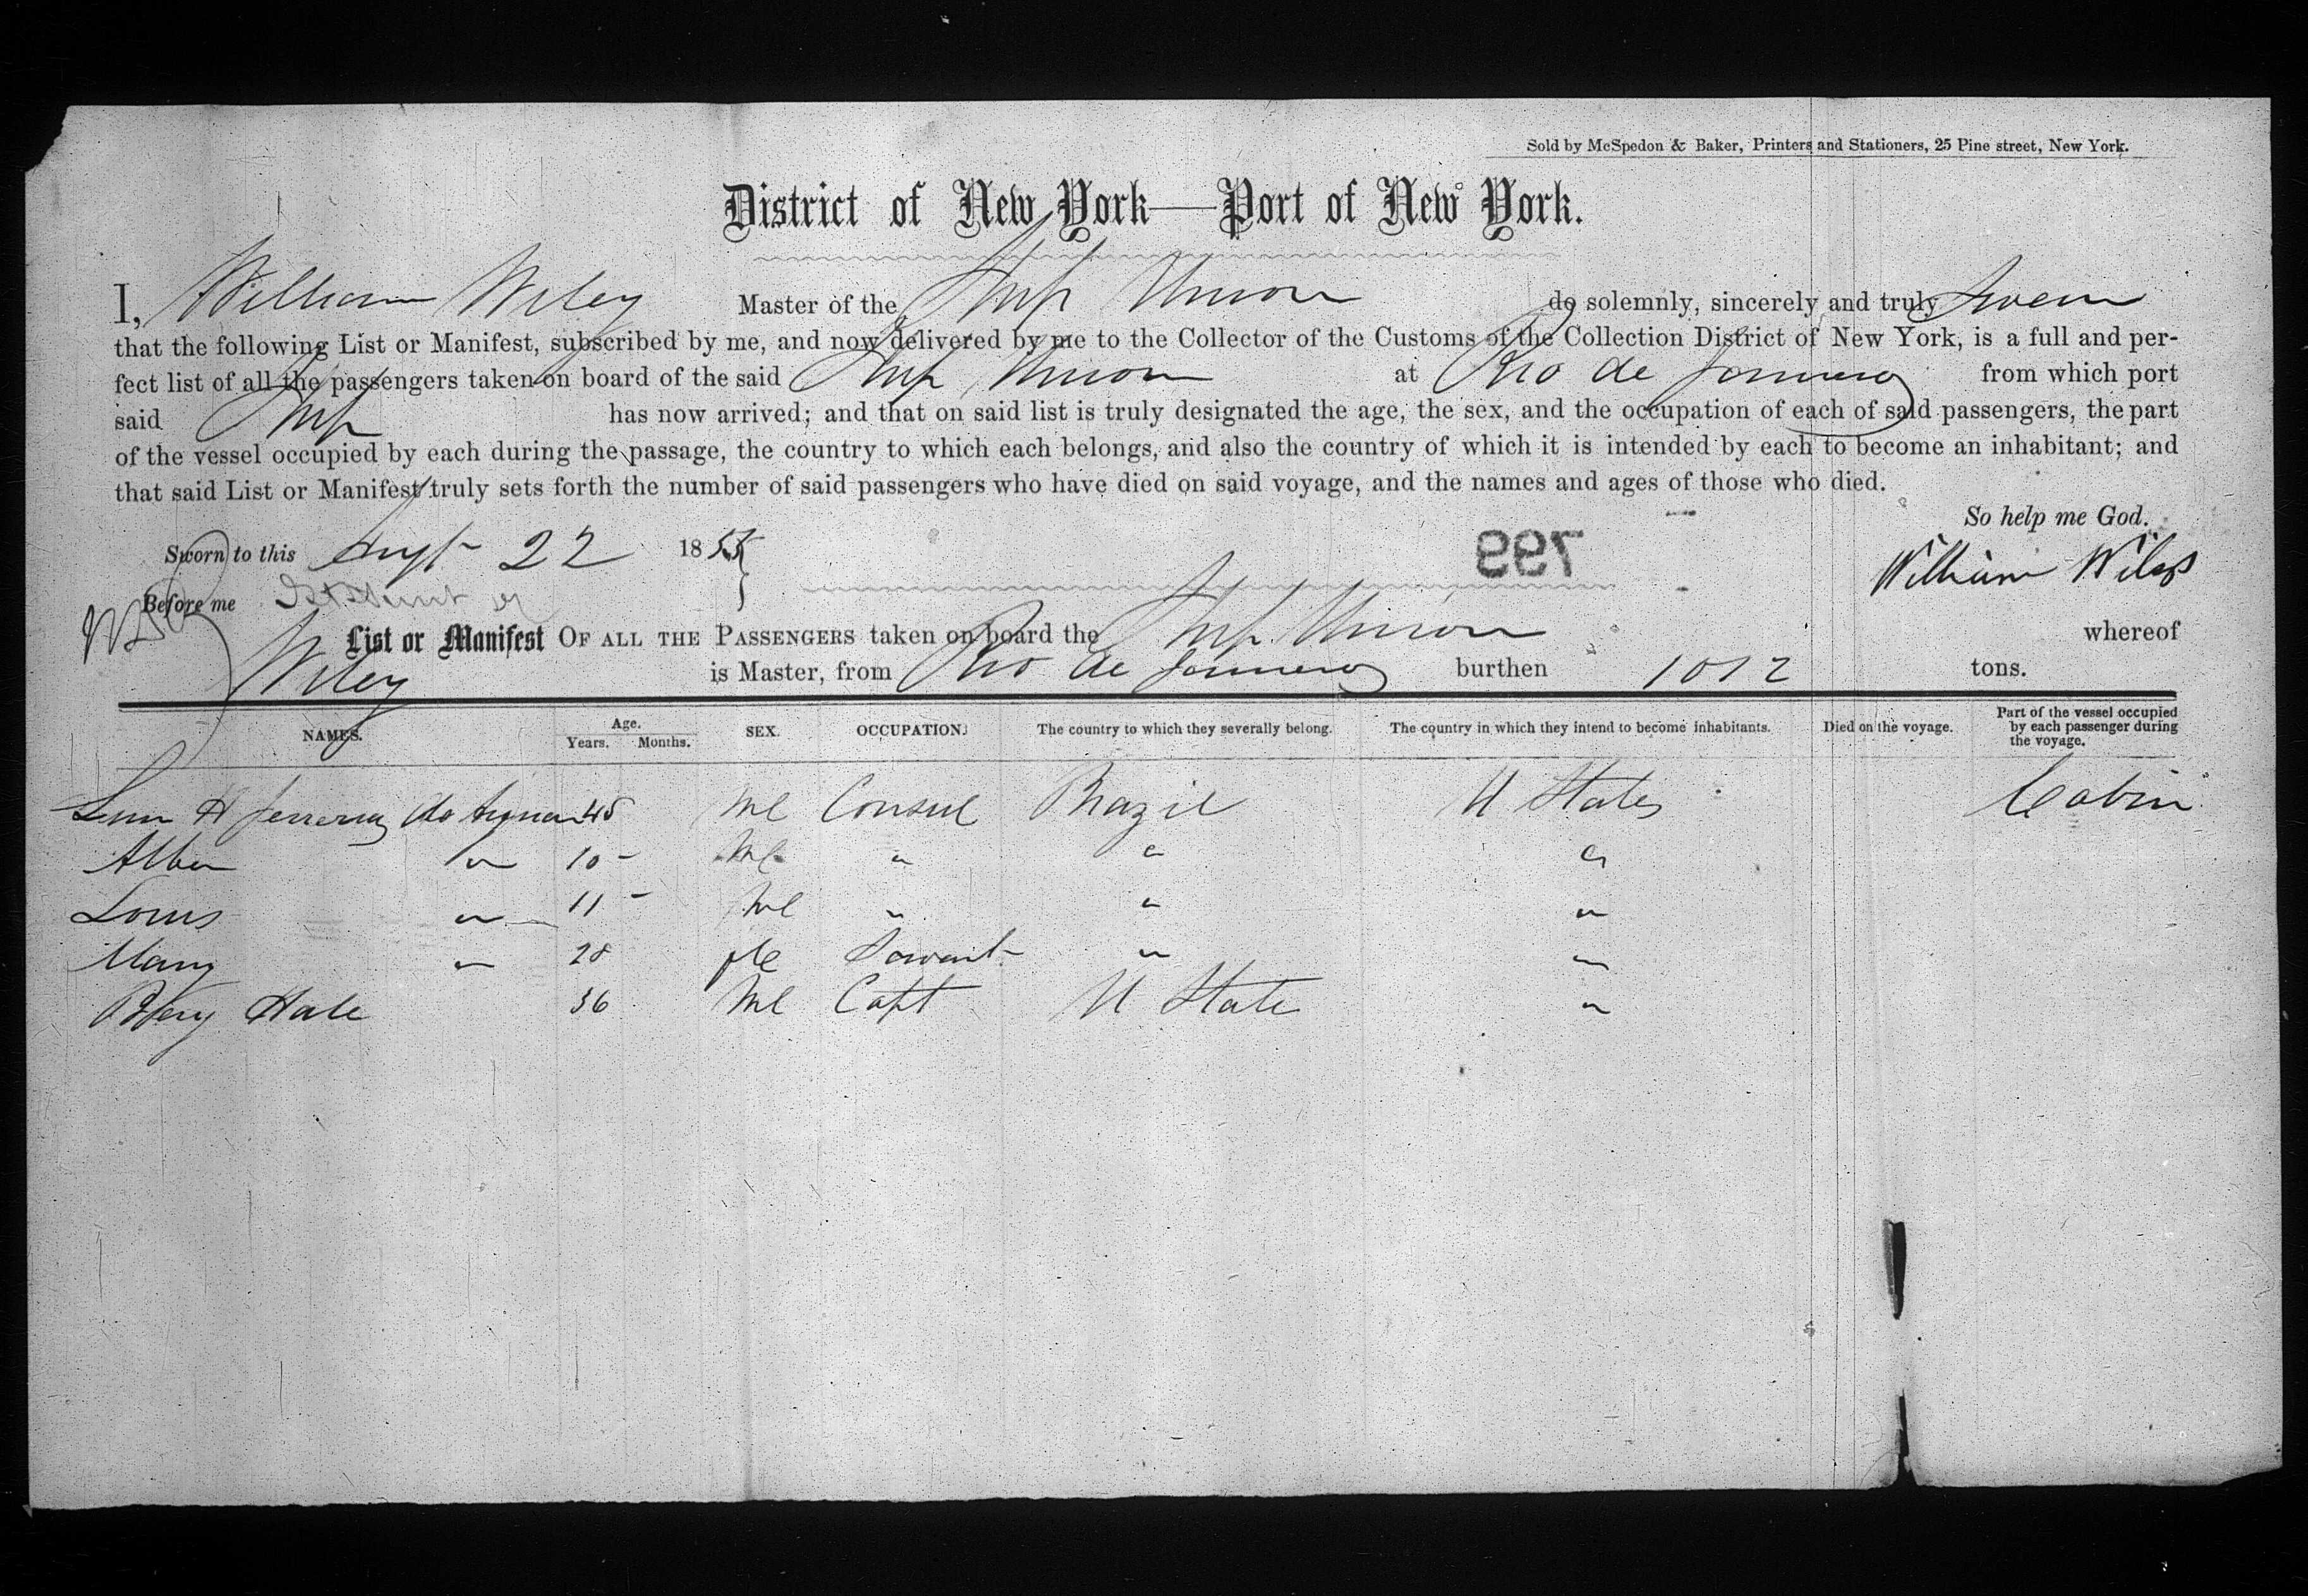 Sold by McSpedon & Baker, Printers and Stationers, 25 Pine street, New York.
District of New York—Port of New York.
I, William Wiley Master of the Ship Union do solemnly, sincerely and truly swear
that the following List or Manifest, subscribed by me, and now delivered by me to the Collector of the Customs of the Collection District of New York, is a full and per-
fect list of all the passengers taken on board of the said Ship Union at Rio de Janeiro from which port
said Ship has now arrived; and that on said list is truly designated the age, the sex, and the occupation of each of said passengers, the part
of the vessel occupied by each during the passage, the country to which each belongs, and also the country of which it is intended by each to become an inhabitant; and
that said List or Manifest truly sets forth the number of said passengers who have died on said voyage, and the names and ages of those who died.
So help me God.
Sworn to this 22 1855
799
William Wiley
Before me
List or Manifest OF ALL THE PASSENGERS taken on board the Ship Union whereof
Wiley is Master, from Rio de Janeiro burthen 1012 tons.
NAMES. Age. Years. Months. SEX. OCCUPATION. The country to which they severally belong. The country in which they intend to become inhabitants. Died on the voyage. Part of the vessel occupied by each passenger during the voyage.
H Ferrera 45 Ml Consul Brazil U States Cabin
" 10 - Ml " " "
Louis " 11 - Ml " " "
Mary " 28 fle Servant " "
Hale 36 Ml Capt U State "